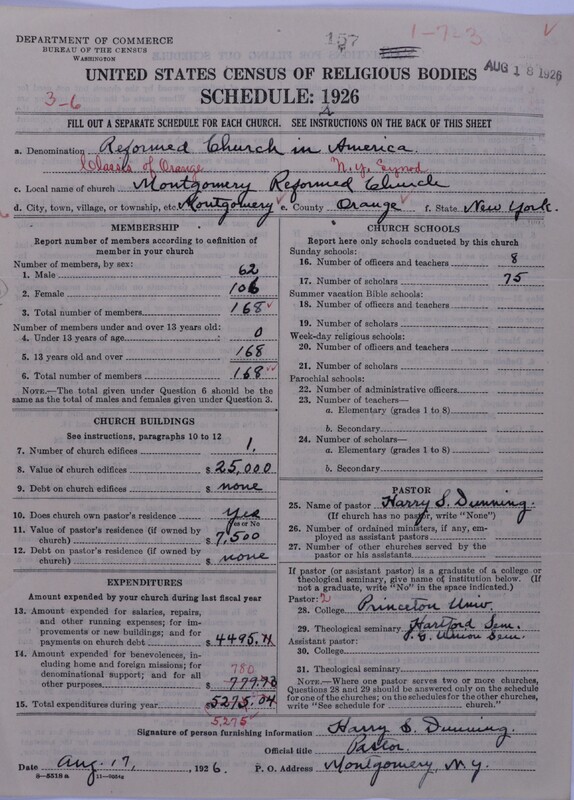 DEPARTMENT OF COMMERCE
BUREAU OF THE CENSUS
WASHINGTON
157
1-7-3
AUG 18 1926
UNITED STATES CENSUS OF RELIGIOUS BODIES
SCHEDULE: 1926
3-6
FILL OUT A SEPARATE SCHEDULE FOR EACH CHURCH. SEE INSTRUCTIONS ON THE BACK OF THIS SHEET
a. Denomination Reformed Church in America.
Classis of Orange N.Y. Synod
c. Local name of church Montgomery Reformed Church
d. City, town, village, or township, etc. Montgomery e. County Orange f. State New York.
MEMBERSHIP
Report number of members according to definition of
member in your church
Number of members, by sex:
1. Male 62
2. Female 106
3. Total number of members 168
Number of members under and over 13 years old:
4. Under 13 years of age 0
5. 13 years old and over 168
6. Total number of members 168
NOTE.—The total given under Question 6 should be
same as the total of males and females given under Question 3.
CHURCH BUILDINGS
See instructions, paragraphs 10 to 12
7. Number of church edifices 1.
8. Value of church edifices $ 25,000
9. Debt on church edifices $ none
10. Does church own pastor's residence Yes
Yes or No
11. Value of pastor's residence (if owned by
church) $ 7,500
12. Debt on pastor's residence (if owned by
church) $ none
EXPENDITURES
Amount expended by your church during last fiscal year
13. Amount expended for salaries, repairs,
and other running expenses; for im-
provements or new buildings; and for
payments on church debt $ 4495.
14. Amount expended for benevolences, in-
cluding home and foreign missions; for
denominational support; and for all
other purposes $
780
15. Total expenditures during year $ 5275.04
5,275
CHURCH SCHOOLS
Report here only schools conducted by this church
Sunday schools:
16. Number of officers and teachers 8
17. Number of scholars 75
Summer vacation Bible schools:
18. Number of officers and teachers
19. Number of scholars
Week-day religious schools:
20. Number of officers and teachers
21. Number of scholars
Parochial schools:
22. Number of administrative officers
23. Number of teachers—
a. Elementary (grades 1 to 8)
b. Secondary
24. Number of scholars—
a. Elementary (grades 1 to 8)
b. Secondary
PASTOR
25. Name of pastor Harry S. Dunning.
(If church has no pastor, write "None")
26. Number of ordained ministers, if any, em-
ployed as assistant pastors
27. Number of other churches served by the
pastor or his assistants
If pastor (or assistant pastor) is a graduate of a college or
theological seminary, give name of institution below. (If
not a graduate, write "No" in the space indicated.)
Pastor: 2
28. College Princeton Univ.
29. Theological seminary Hartford Sem.
Union Sem.
Assistant pastor:
30. College
31. Theological seminary
NOTE.—Where one pastor serves two or more churches,
Questions 28 and 29 should be answered only on the schedule
for one of the churches; on the schedules for the other churches,
write "See schedule for church."
Signature of person furnishing information Harry S. Dunning.
Official title Pastor.
Date Aug. 17, 1926. P. O. Address Montgomery, N.Y.
8—5518a